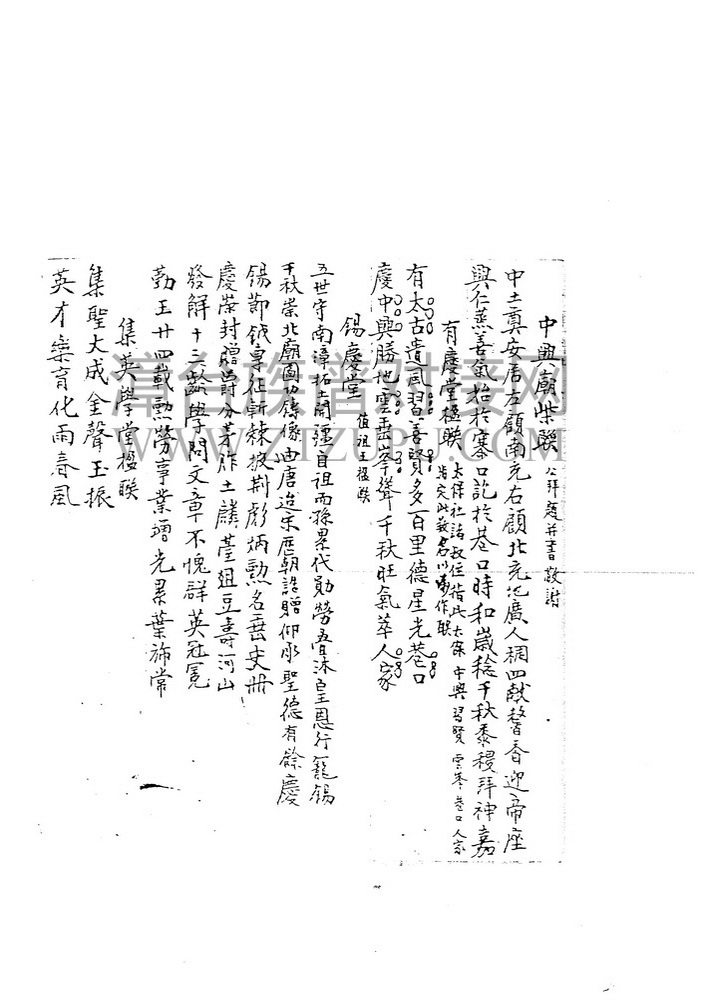 中興廟柴聯 公拜慶并書敬謝
中土奠安居左顧南充右顧北充地廣人稠四獻馨香迎帝座
興仁蒸善氣始於寨口訖於巷口時和歲稔千秋黍稷拜神嘉
有慶堂楹聯 太保社諸叔住指此太保 中興 習賢 雲峯 巷口 人家
指定此数名以為作联
有太古遺風習善賢多百里德星光巷口
慶中興勝地雲垂峯聳千秋旺氣萃人家
錫慶堂 值祖玉楹联
五世守南漳拓土開疆自祖而孫累代勛勞眷沐皇恩行寵錫
千秋崇北廟圖功鑄像由唐迨宋歷朝誥贈仰承聖德有餘慶
錫節鉞專征斬棘披荊彪炳勲名垂史冊
慶榮封贈爵分茅胙土麟臺俎豆壽河山
發解十三齡學問文章不愧群英冠冕
勤王廿四載勲勞事業增光累葉旂常
集英學堂楹聯
集聖大成金聲玉振
英才樂育化雨春風
尋百族譜對接网
WWW.ZIZUPU.COM